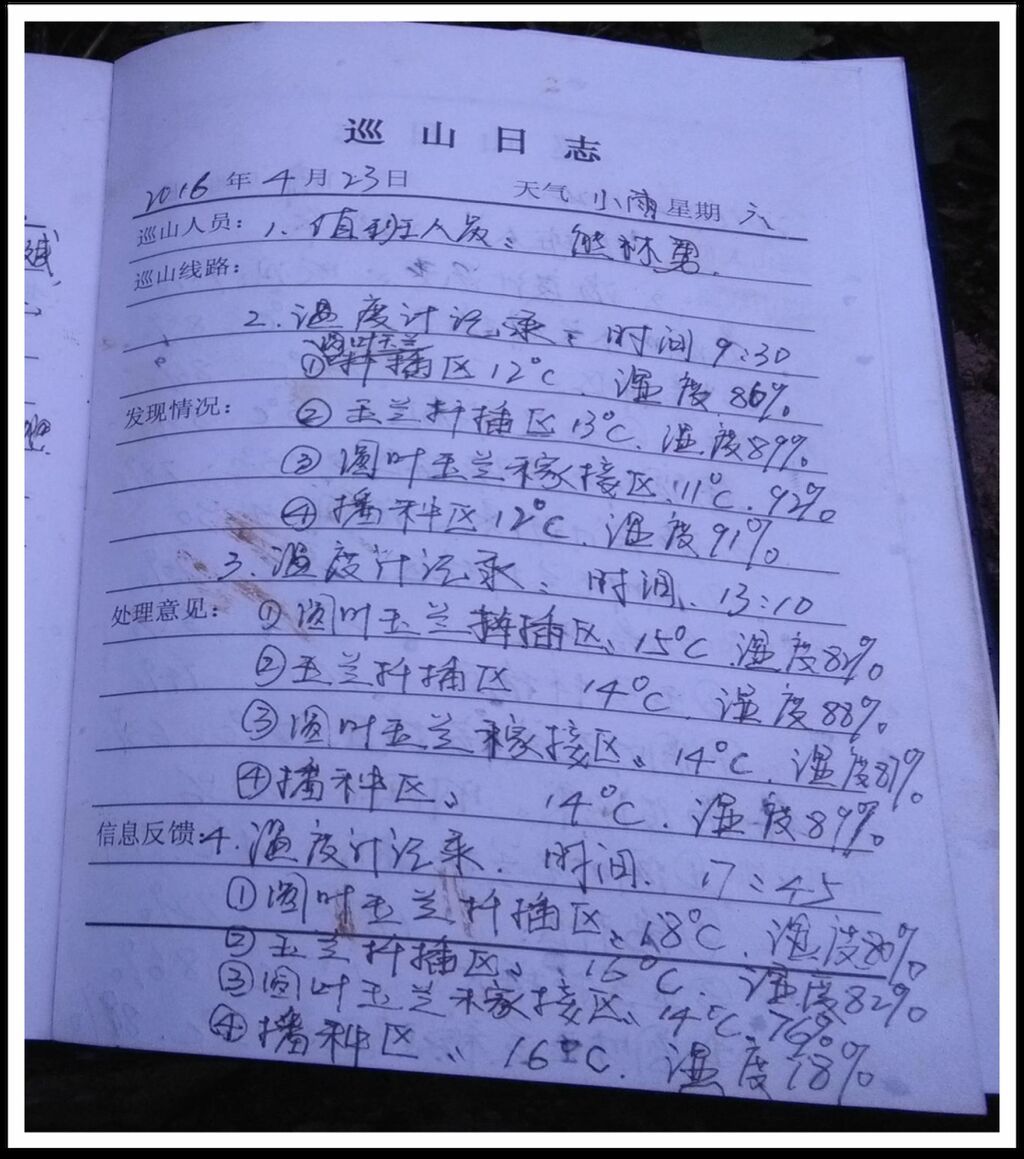 巡山日志
2016年4月23日 天气 小雨 星期 六
巡山人员：1、值班人员： 熊林勇.
巡山线路：
2.温度计记录： 时间 9:30
圆叶玉兰
①扦插区12°C 湿度.86%
发现情况： ②玉兰扦插区13°C.湿度89%
③圆叶玉兰稼接区.11°C.92%
④播种区12°C.湿度91%
3.温度计记录： 时间、13:10
处理意见： ①圆叶玉兰扦插区、15°C.湿度82%
②玉兰扦插区 14°C.湿度88%
③圆叶玉兰稼接区、14°C.湿度87%
④播种区、 14°C.湿度89%
信息反馈：4.温度计记录. 时间. 17:45
①圆叶玉兰扦插区、18°C.湿度80%
②玉兰扦插区、16°C.湿度82%
③圆叶玉兰稼接区、14°C.76%
④播种区、16°C.湿度78%